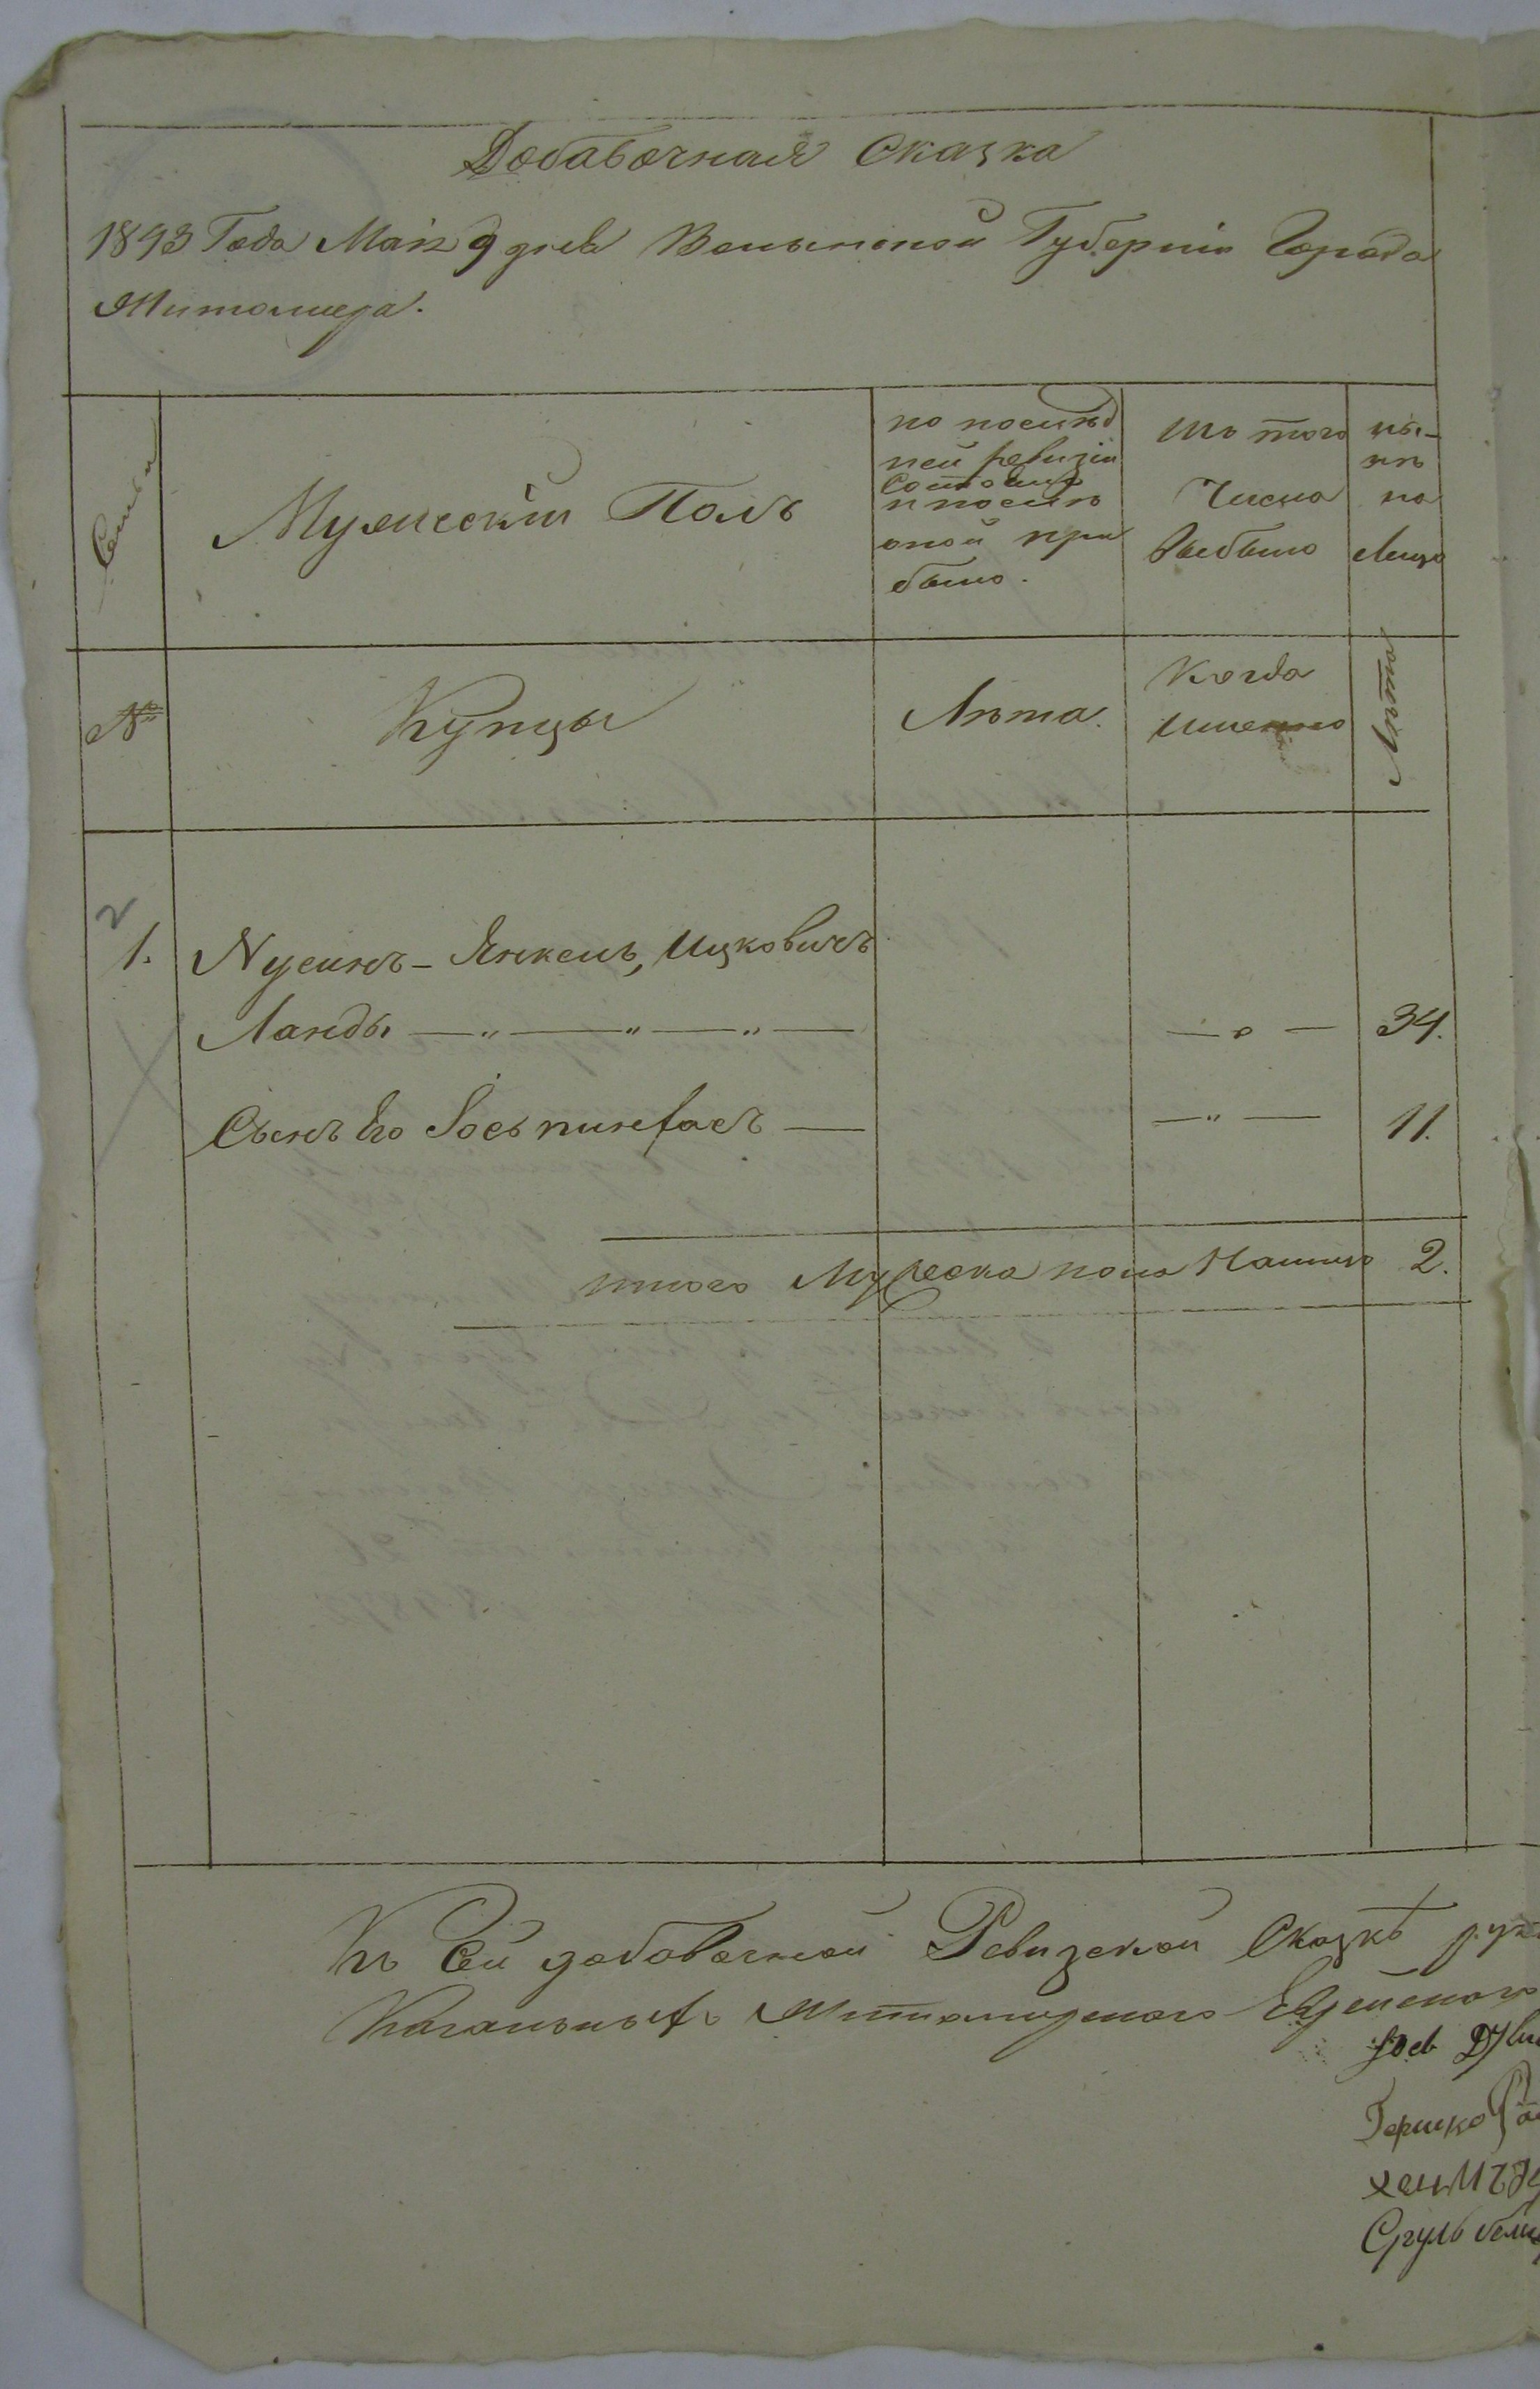 Добавочная Сказка
1843 Года Маія 9 дня Волынской Губерніи Города
Житомира.
Семьи
Мужескій Полъ
по послѣд
ней ревизіи
состояло
и послѣ
оной при
было.
Изъ того
Числа
Выбыло
ны-
нѣ
на
Лицо
№
Купцы
Лѣта.
Когда
Именно
Лѣта
2
1. Нусинъ-Янкель, Ицковичъ
Ланды — " — " — " — — " — 34.
Сынъ Его Іось пинхасъ — — " — 11.
итого Мужеска пола Налицо 2.
Къ Сей добавочной Ревизской Сказкѣ рук
Кагальныхъ Житомирского Еврейского
Іось
Гершко
Сруль